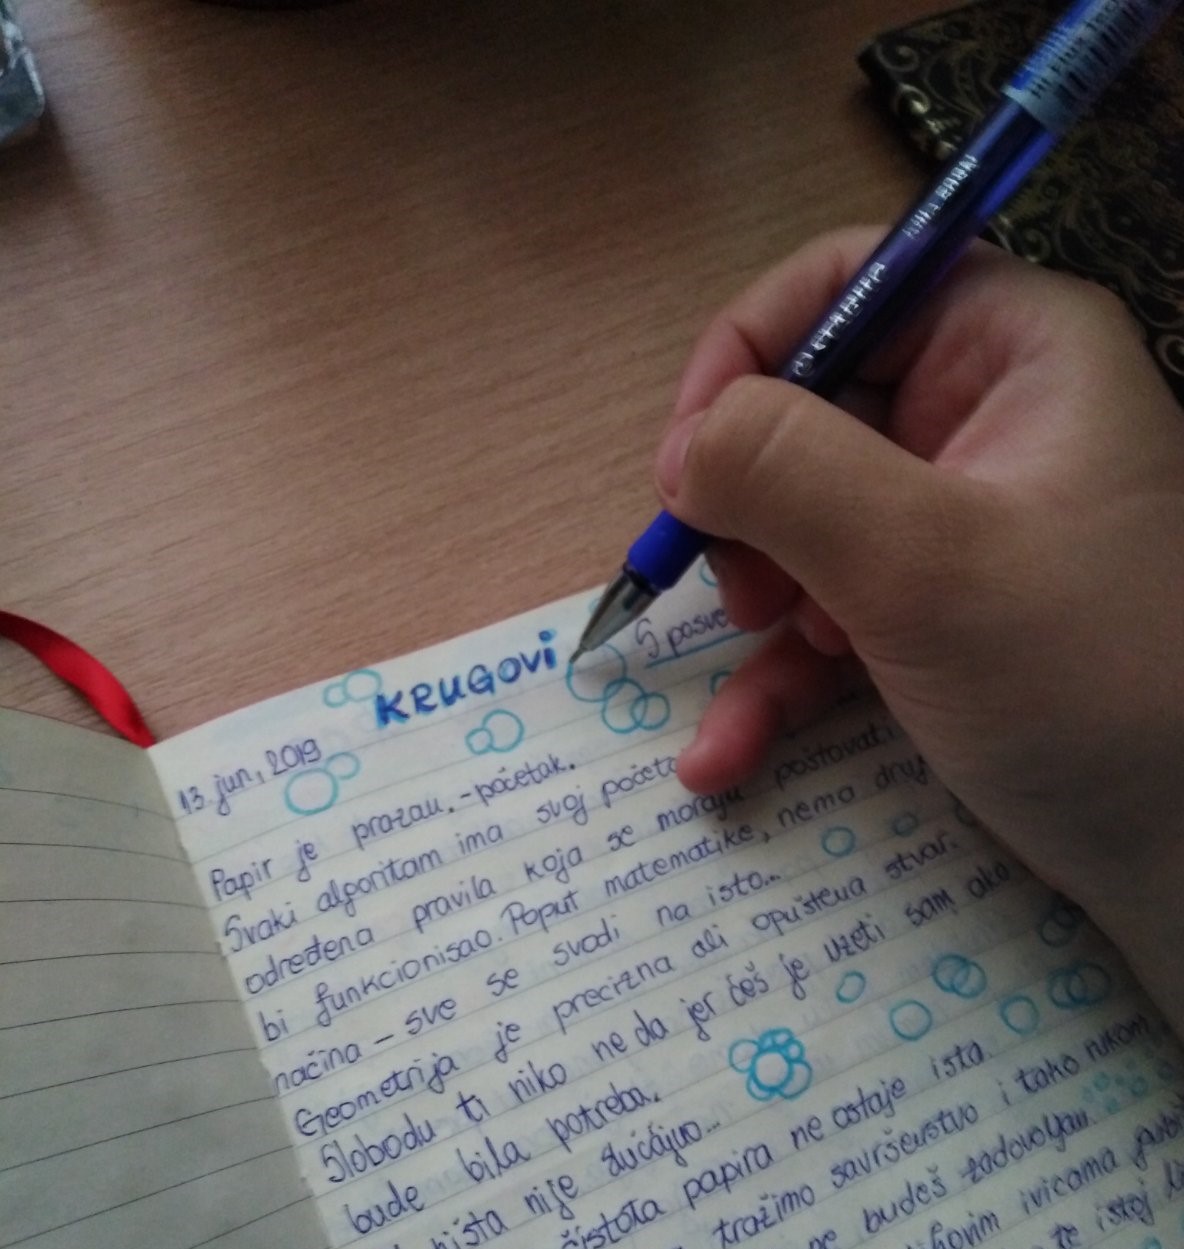 KRUGOVI
13. jun, 2019
Papir je prazan. - početak.
Svaki algoritam ima svoj
određena pravila koja se moraju poštovati
bi funkcionisao. Poput matematike, nema
načina - sve se svodi na isto...
Geometrija je precizna ali opuštena stvar.
Slobodu ti niko ne da jer ćeš je uzeti sam ako
bude bila potreba.
ništa nije slučajno...
čistota papira ne ostaje ista.
tražimo savršenstvo i tako
ne budeš zadovoljan.
ivicama
istoj